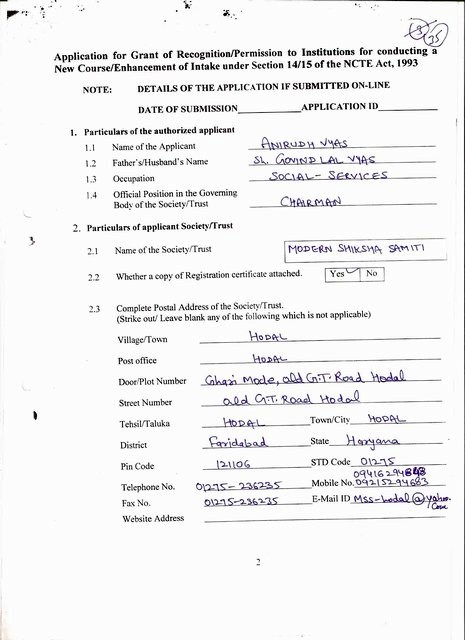 Application for Grant of Recognition/Permission to Institutions for conducting a
New Course/Enhancement of Intake under Section 14/15 of the NCTE Act, 1993
NOTE: DETAILS OF THE APPLICATION IF SUBMITTED ON-LINE
DATE OF SUBMISSION APPLICATION ID
1. Particulars of the authorized applicant
1.1 Name of the Applicant ANIRUDH VYAS
1.2 Father's/Husband's Name Sh. GOVIND LAL VYAS
1.3 Occupation SOCIAL-SERVICES
1.4 Official Position in the Governing
Body of the Society/Trust CHAIRMAN
2. Particulars of applicant Society/Trust
2.1 Name of the Society/Trust MODERN SHIKSHA SAMITI
2.2 Whether a copy of Registration certificate attached. Yes No
2.3 Complete Postal Address of the Society/Trust.
(Strike out/ Leave blank any of the following which is not applicable)
Village/Town HODAL
Post office HODAL
Door/Plot Number Ghazi Mode, old G.T. Road Hodal
Street Number old G.T. Road Hodal
Tehsil/Taluka HODAL Town/City HODAL
District Faridabad State Haryana
Pin Code 121106 STD Code 01275
Telephone No. 01275-236235 Mobile No. 09215294683
Fax No. 01275-236235 E-Mail ID Mss-hodal@yahoo.
Com
Website Address
2